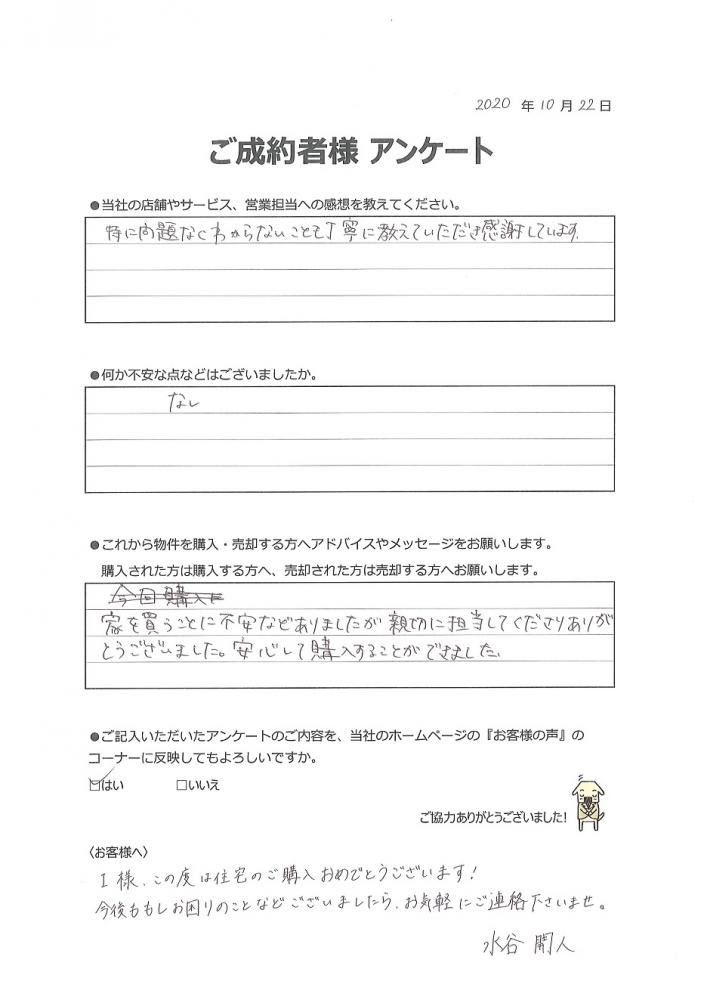 2020 年 10 月 22 日
ご成約者様 アンケート
●当社の店舗やサービス、営業担当への感想を教えてください。
特に問題なくわからないことも丁寧に教えていただき感謝しています。
●何か不安な点などはございましたか。
なし
●これから物件を購入・売却する方へアドバイスやメッセージをお願いします。
購入された方は購入する方へ、売却された方は売却する方へお願いします。
今回購入に
家を買うことに不安などありましたが親切に担当してくださりありが
とうございました。安心して購入することができました。
●ご記入いただいたアンケートのご内容を、当社のホームページの『お客様の声』の
コーナーに反映してもよろしいですか。
☑はい □いいえ
ご協力ありがとうございました！
〈お客様へ〉
I 様、この度は住宅のご購入おめでとうございます！
今後ももしお困りのことなどございましたら、お気軽にご連絡下さいませ。
水谷 人